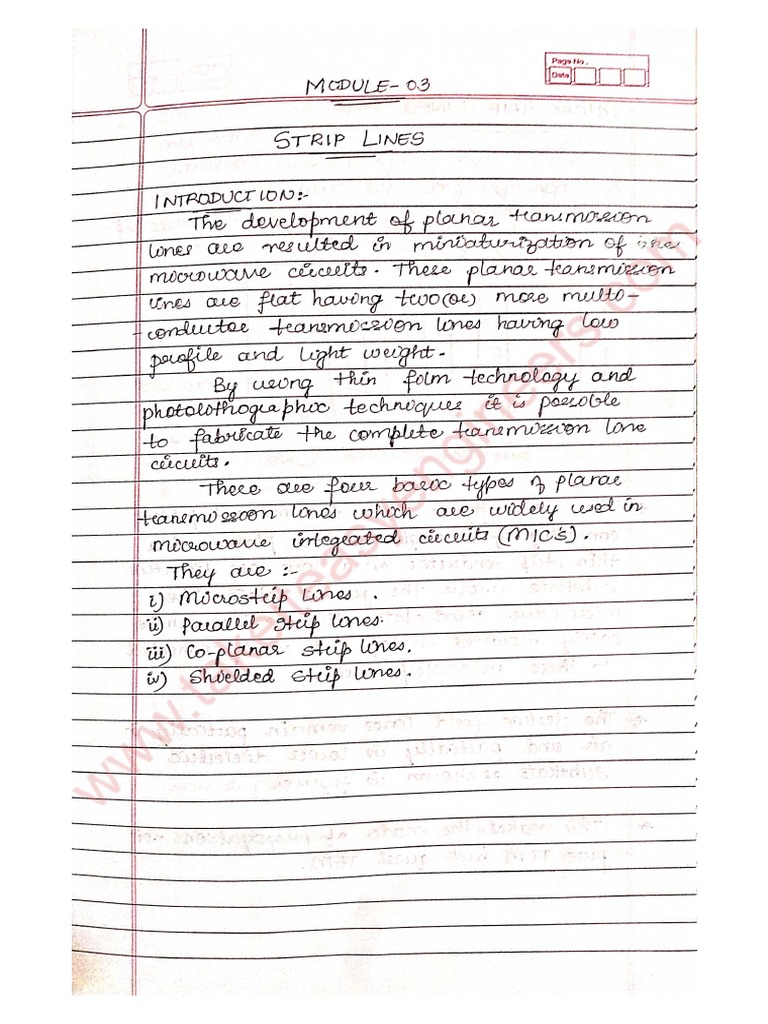 Page No.
Date
MODULE-03
STRIP LINES
INTRODUCTION:-
The development of planar transmission
lines are resulted in miniaturization of the
microwave circuits. These planar transmission
lines are flat having two(or) more multi-
-conductor transmission lines having low
profile and light weight.
By using thin film technology and
photolithographic techniques it is possible
to fabricate the complete transmission line
circuits.
There are four basic types of planar
transmission lines which are widely used in
microwave integrated circuits (MIC's).
They are :-
i) Microstrip Lines.
ii) Parallel strip lines.
iii) Co-planar strip lines.
iv) Shielded strip lines.
www.takeiteasyengineers.com